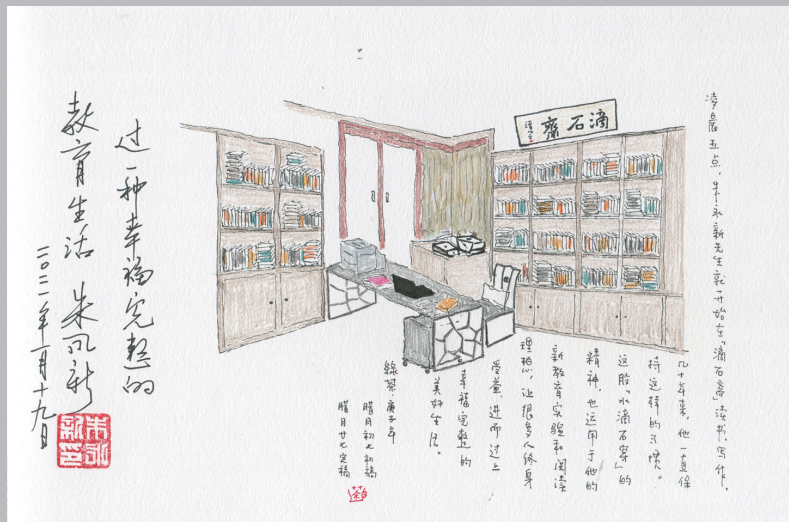 凌晨五点，朱永新先生就开始在「滴石斋」读书、写作。
几十年来，他一直保
持这样的习惯。
这股「水滴石穿」的
精神，也运用于他的
新教育实验和阅读
理想，让很多人终身
受益，进而过上
幸福完整的
美好生活。
綠茶·庚子年
腊月初七初稿
腊月廿七定稿
滴石齋
过一种幸福完整的
教育生活 朱永新
二〇二一年一月十九日
朱永
新印